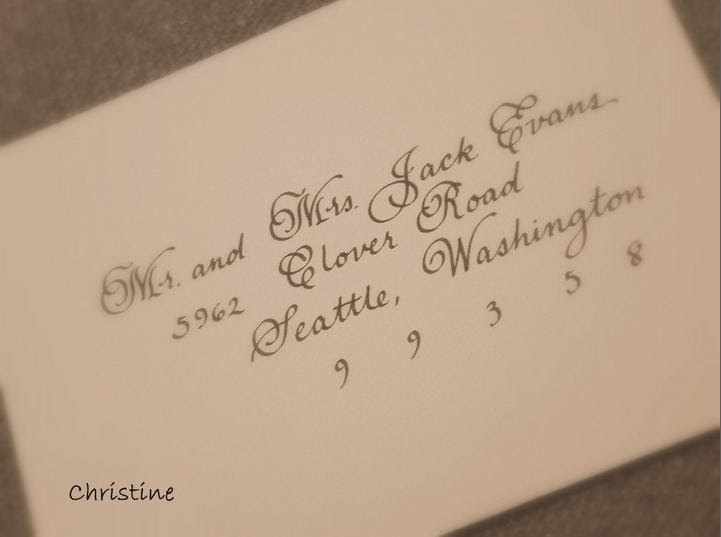 Mr. and Mrs. Jack Evans
5962 Clover Road
Seattle, Washington
9 9 3 5 8
Christine